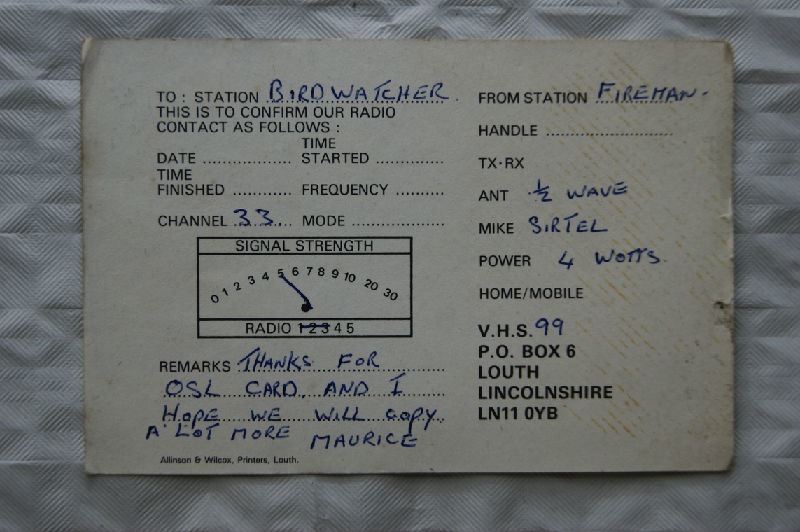 TO: STATION BIRDWATCHER.
THIS IS TO CONFIRM OUR RADIO
CONTACT AS FOLLOWS:
DATE .................. TIME STARTED ..............
TIME FINISHED ............ FREQUENCY ..........
CHANNEL 33 MODE ....................
SIGNAL STRENGTH
0 1 2 3 4 5 6 7 8 9 10 20 30
RADIO 1 2 3 4 5
REMARKS THANKS FOR
QSL CARD. AND I
HOPE WE WILL COPY
A LOT MORE MAURICE
Allinson & Wilcox, Printers, Louth.
FROM STATION FIREMAN.
HANDLE ...........................
TX·RX
ANT ½ WAVE
MIKE SIRTEL
POWER 4 WOTTS
HOME/MOBILE
V.H.S. 99
P.O. BOX 6
LOUTH
LINCOLNSHIRE
LN11 0YB